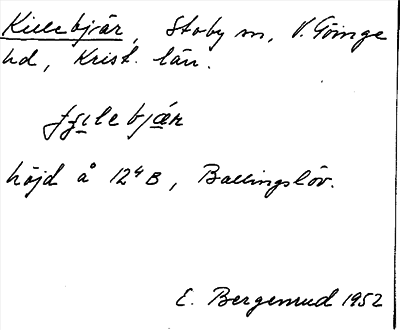 Killebjär, Stoby sn, V. Göinge
hd, Krist. län.
höjd å 12⁴B, Ballingslöv.
E. Bergenrud 1952